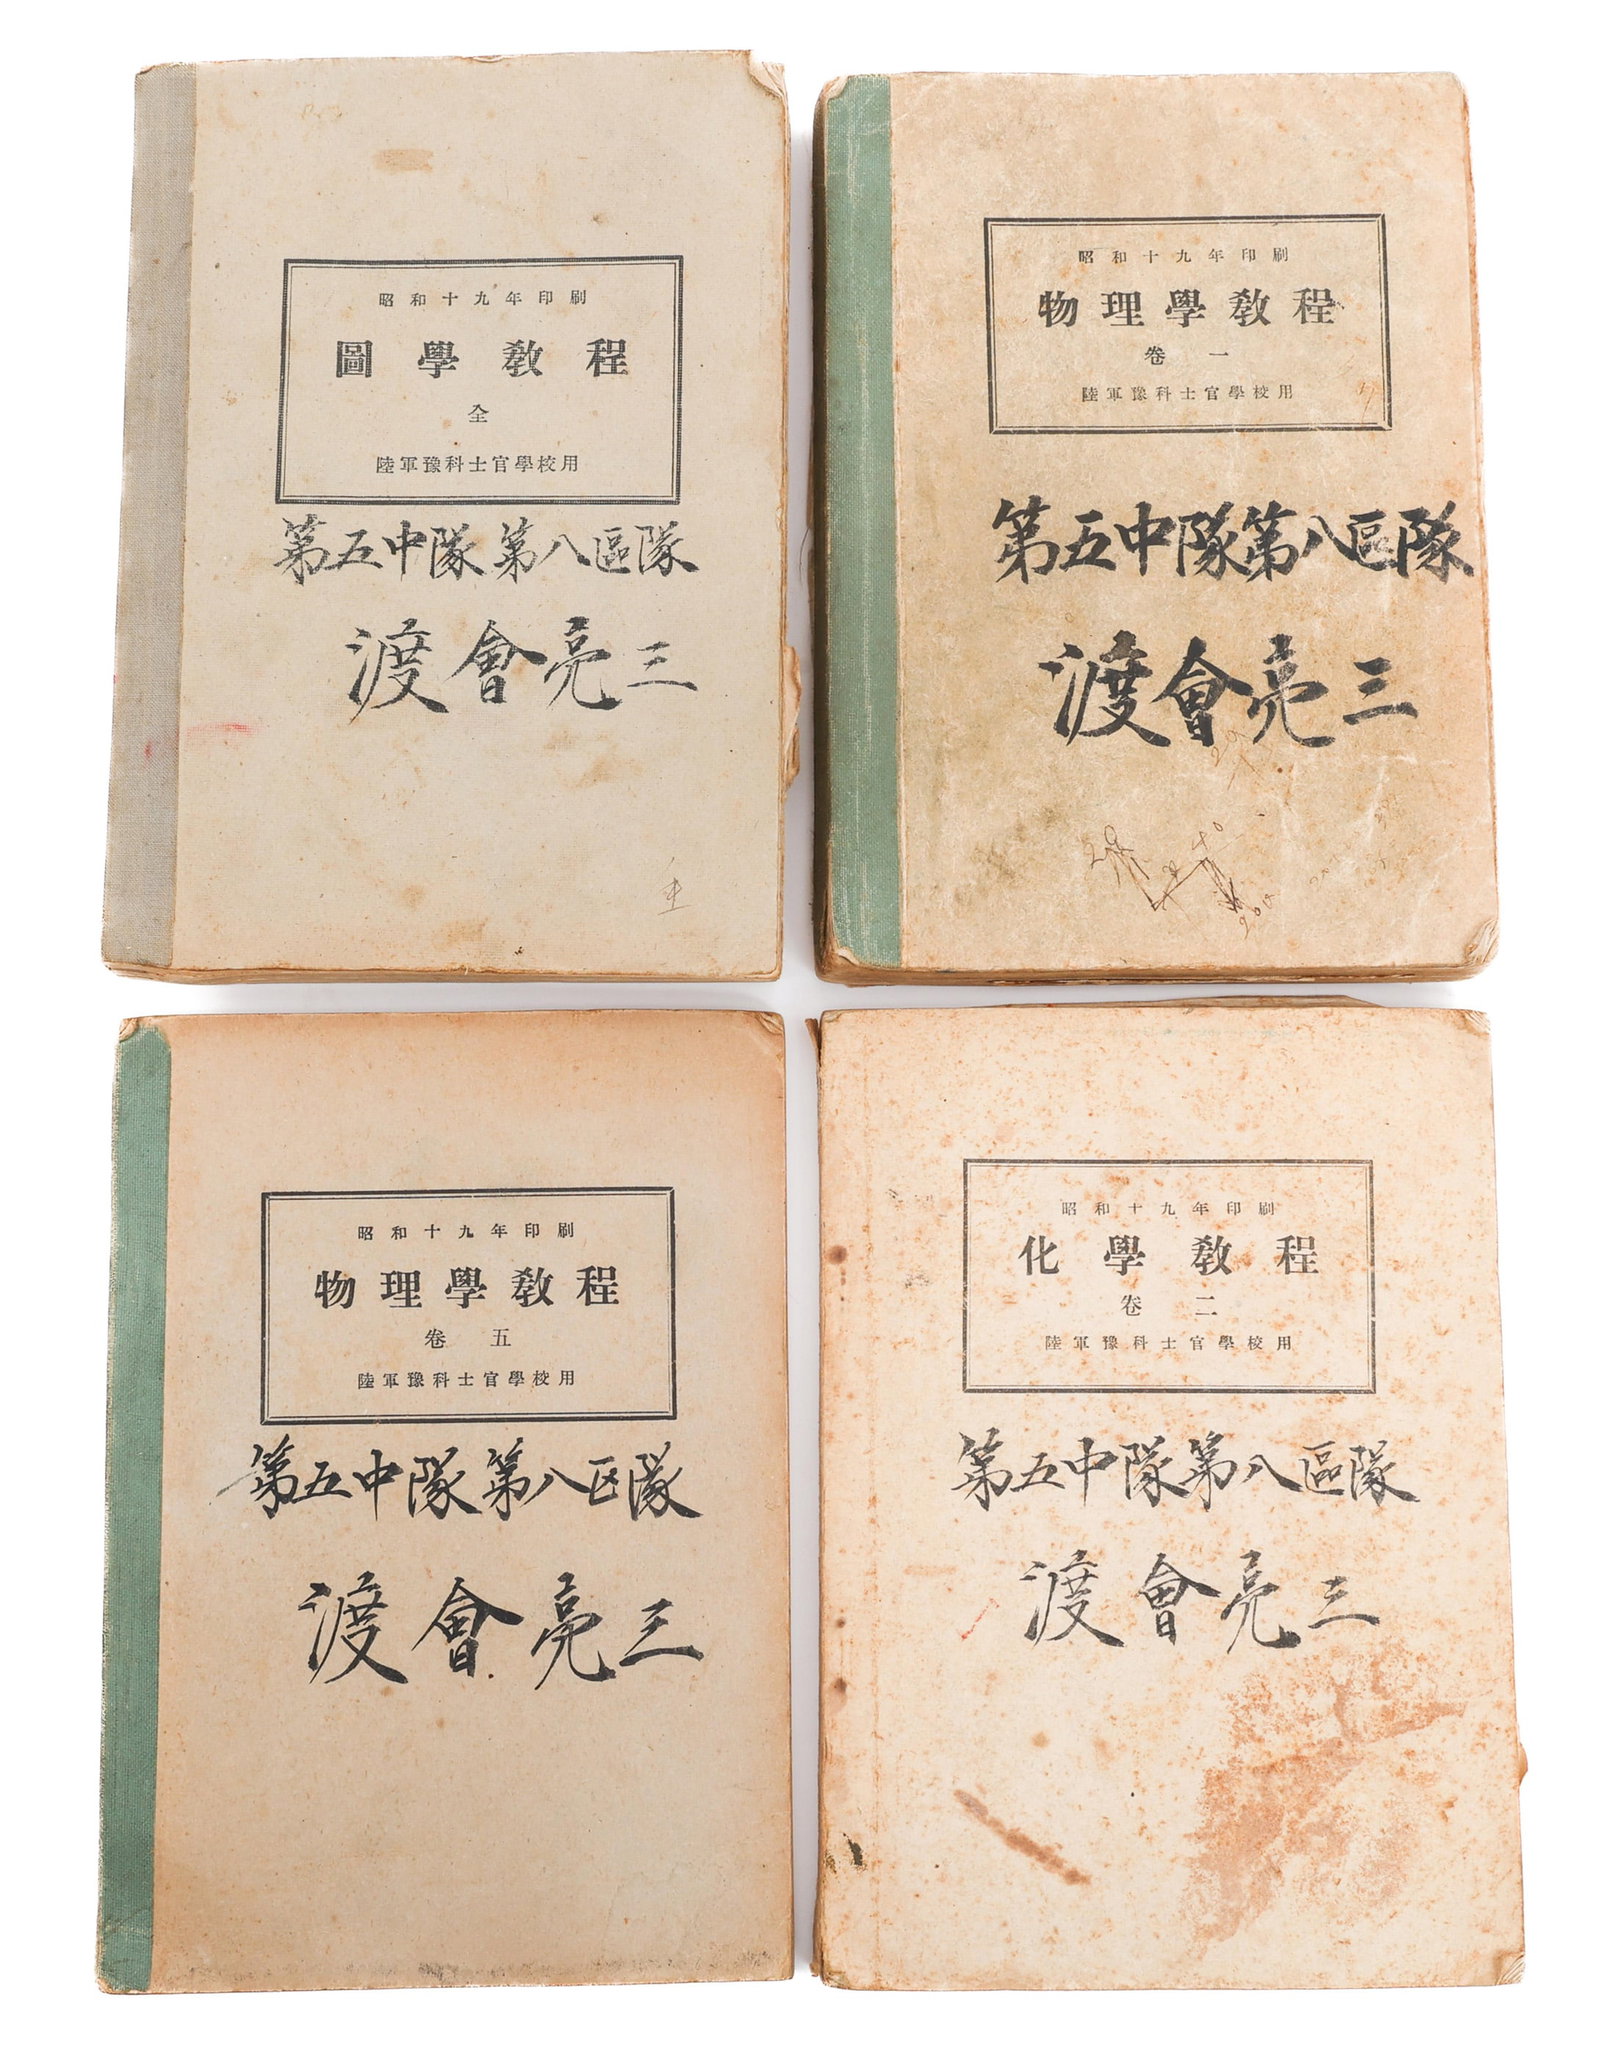 昭和十九年印刷
圖學敎程
全
陸軍豫科士官學校用
第五中隊第八區隊
渡會亮三
昭和十九年印刷
物理學敎程
卷一
陸軍豫科士官學校用
第五中隊第八區隊
渡會亮三
昭和十九年印刷
物理學敎程
卷五
陸軍豫科士官學校用
第五中隊第八区隊
渡會亮三
昭和十九年印刷
化學敎程
卷二
陸軍豫科士官學校用
第五中隊第八區隊
渡會亮三